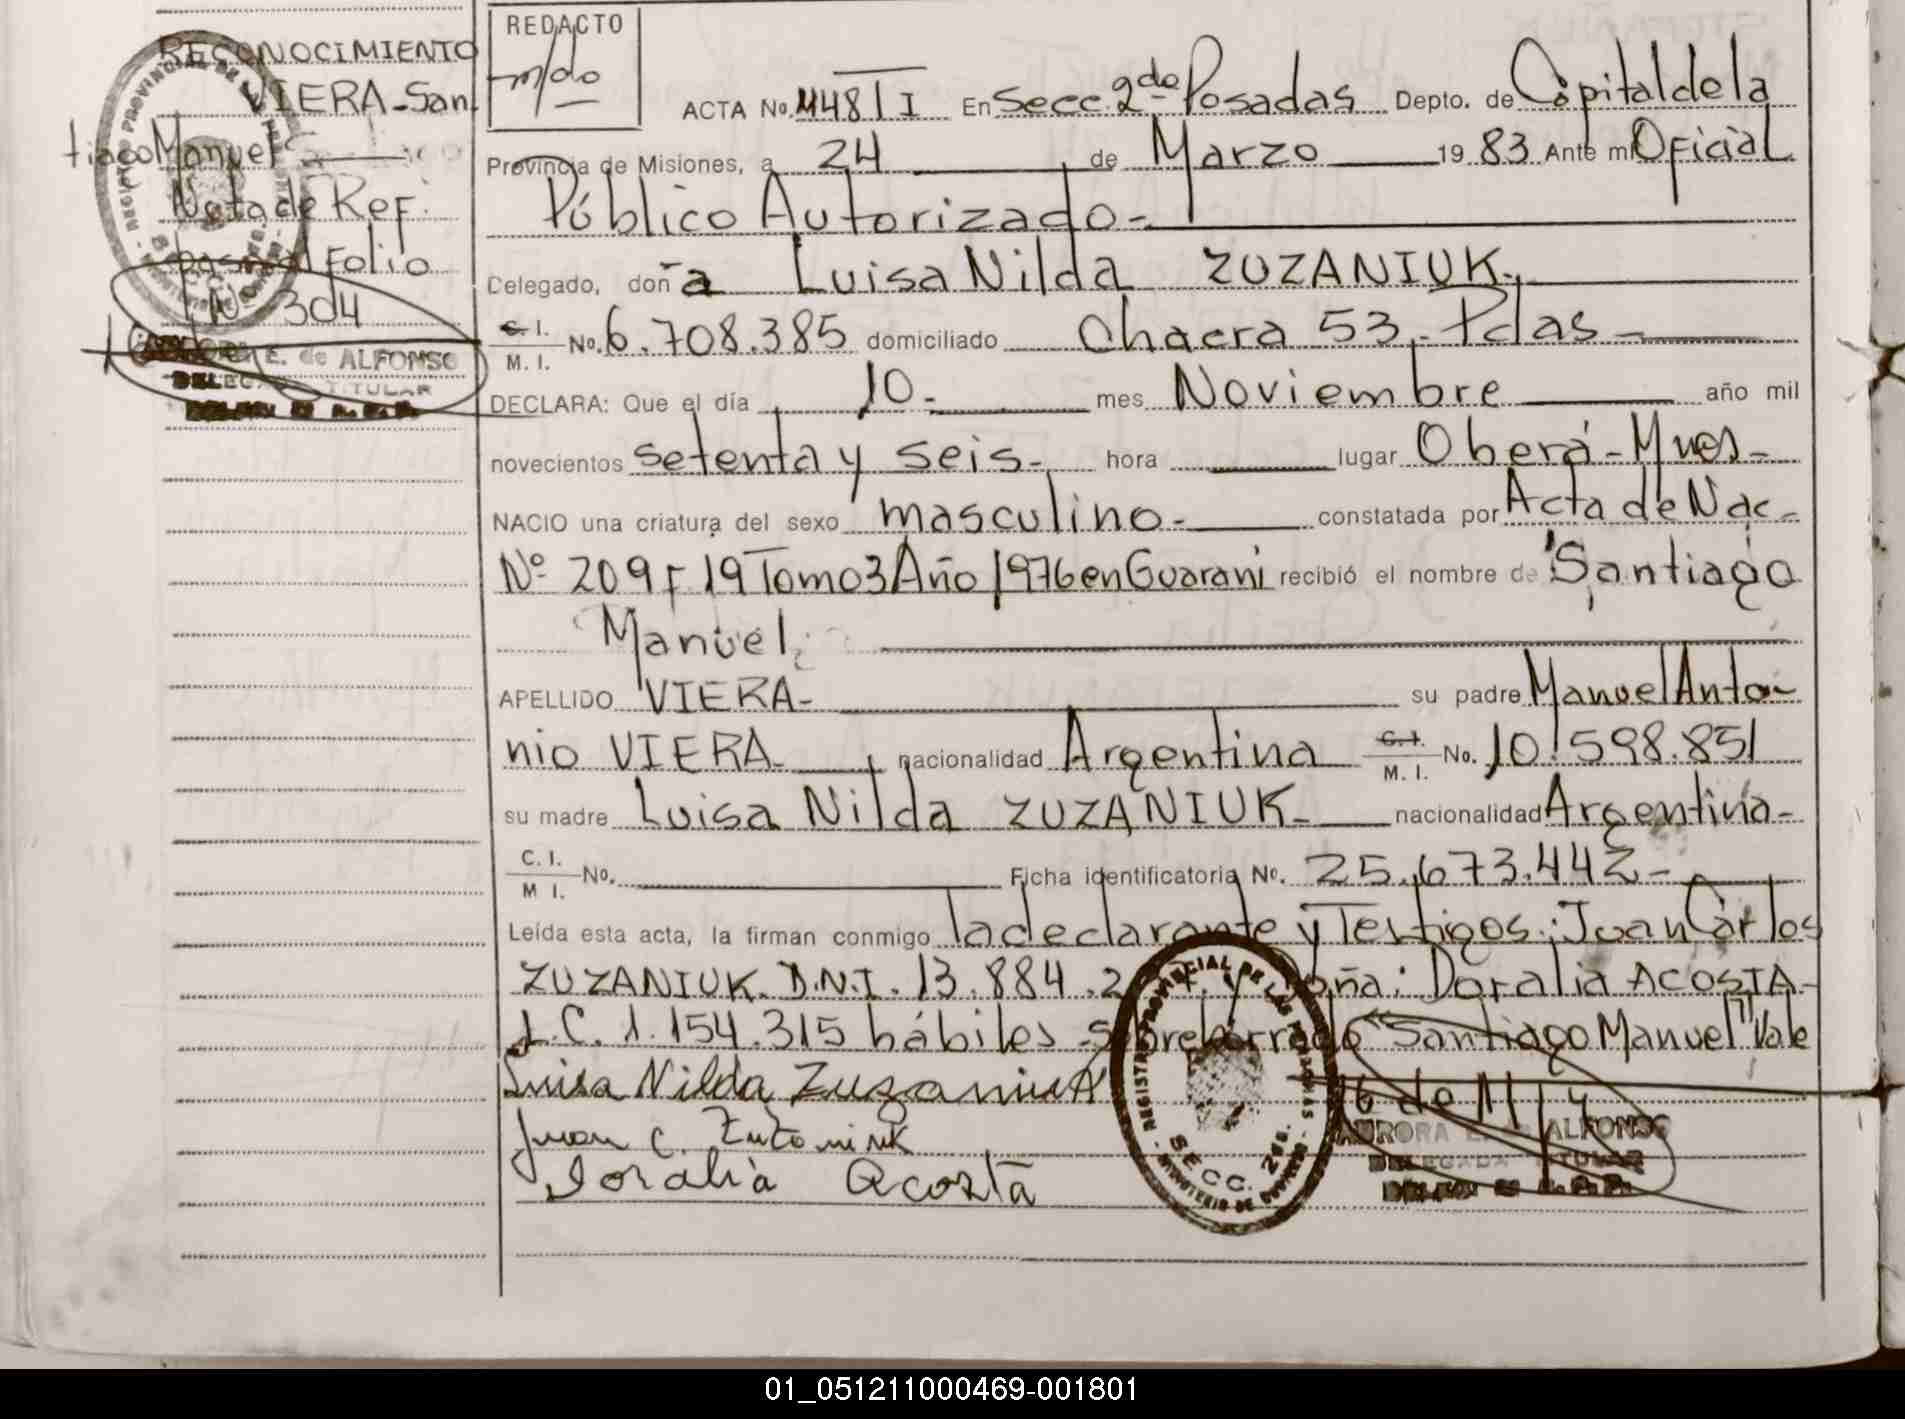 RECONOCIMIENTO
VIERA-San
tiago Manuel
Nota de Ref.
Pasa al Folio
Nº 304
AURORA E. de ALFONSO
DELEGADA TITULAR
REDACTO
ACTA No. 448 T I En Secc. 2da Posadas Depto. de Capital de la
Provincia de Misiones, a 24 de Marzo 19 83 Ante mi Oficial
Público Autorizado-
Celegado, doña Luisa Nilda ZUZANIUK.
C. I.
M. I. No. 6.708.385 domiciliado Chacra 53, Pdas-
DECLARA: Que el día 10- mes Noviembre año mil
novecientos setenta y seis- hora lugar Oberá-Mnes-
NACIO una criatura del sexo masculino- constatada por Acta de Nac-
Nº 209 F 19 Tomo 3 Año 1976 en Guarani recibió el nombre de Santiago
Manuel
APELLIDO VIERA- su padre Manuel Anto-
nio VIERA- nacionalidad Argentina C.I.
M. I. No. 10.598.851
su madre Luisa Nilda ZUZANIUK- nacionalidad Argentina-
C. I.
M I. No. Ficha identificatoria No. 25.673.442-
Leída esta acta, la firman conmigo la declarante y Testigos: Juan Carlos
ZUZANIUK. D.N.I. 13.884.2 y doña: Doralia ACOSTA-
L.C. 1.154.315 hábiles-sobreborrado "Santiago Manuel" Vale
Luisa Nilda Zuzaniuk
Juan C. Zuzaniuk
Doralia Acosta
REGISTRO PROVINCIAL DE LAS PERSONAS
SECC. 2da.
MINISTERIO DE GOBIERNO
AURORA E. de ALFONSO
DELEGADA TITULAR
01_051211000469-001801